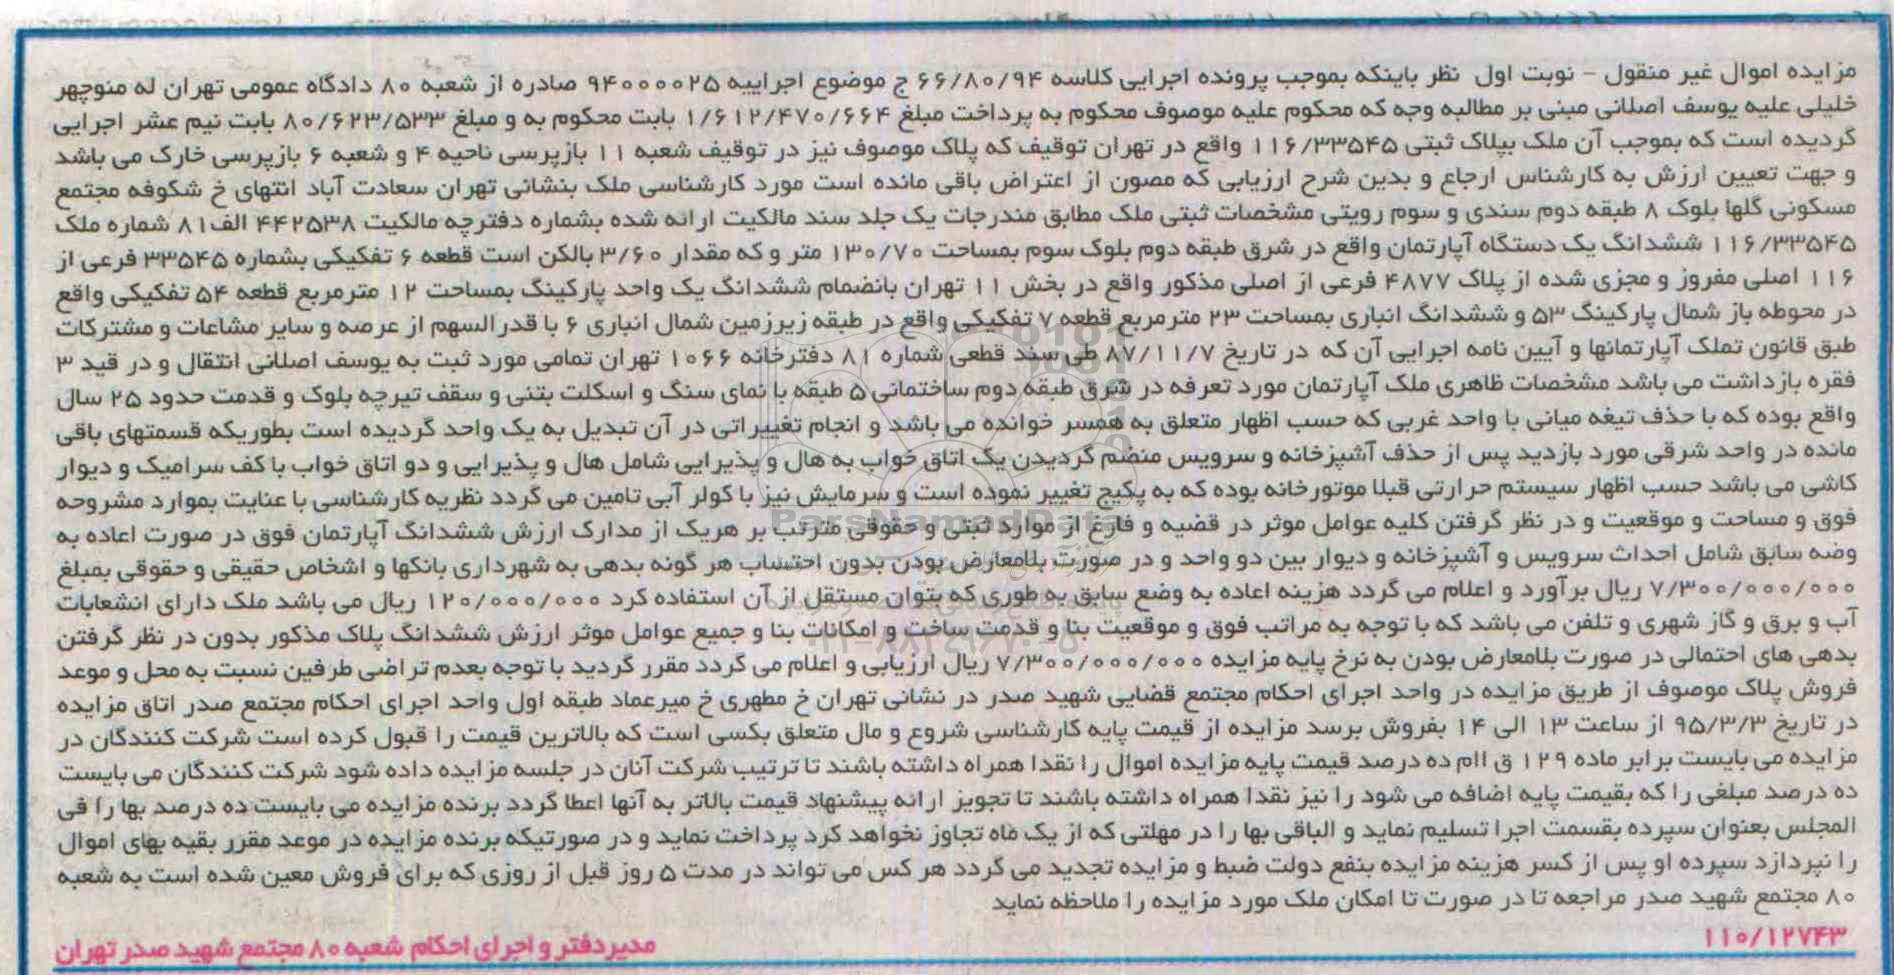 مزایده اموال غیر منقول - نوبت اول نظر باینکه بموجب پرونده اجرایی کلاسه ۶۶/۸۰/۹۴ ج موضوع اجراییه ۹۴۰۰۰۰۲۵ صادره از شعبه ۸۰ دادگاه عمومی تهران له منوچهر
خلیلی علیه یوسف اصلانی مبنی بر مطالبه وجه که محکوم علیه موصوف محکوم به پرداخت مبلغ ۱/۶۱۲/۴۷۰/۶۶۴ بابت محکوم به و مبلغ ۸۰/۶۲۳/۵۳۳ بابت نیم عشر اجرایی
گردیده است که بموجب آن ملک بپلاک ثبتی ۱۱۶/۳۳۵۴۵ واقع در تهران توقیف که پلاک موصوف نیز در توقیف شعبه ۱۱ بازپرسی ناحیه ۴ و شعبه ۶ بازپرسی خارک می باشد
و جهت تعیین ارزش به کارشناس ارجاع و بدین شرح ارزیابی که مصون از اعتراض باقی مانده است مورد کارشناسی ملک بنشانی تهران سعادت آباد انتهای خ شکوفه مجتمع
مسکونی گلها بلوک ۸ طبقه دوم سندی و سوم رویتی مشخصات ثبتی ملک مطابق مندرجات یک جلد سند مالکیت ارائه شده بشماره دفترچه مالکیت ۴۴۲۵۳۸ الف۸۱ شماره ملک
۱۱۶/۳۳۵۴۵ ششدانگ یک دستگاه آپارتمان واقع در شرق طبقه دوم بلوک سوم بمساحت ۱۳۰/۷۰ متر و که مقدار ۳/۶۰ بالکن است قطعه ۶ تفکیکی بشماره ۳۳۵۴۵ فرعی از
۱۱۶ اصلی مفروز و مجزی شده از پلاک ۴۸۷۷ فرعی از اصلی مذکور واقع در بخش ۱۱ تهران بانضمام ششدانگ یک واحد پارکینگ بمساحت ۱۲ مترمربع قطعه ۵۴ تفکیکی واقع
در محوطه باز شمال پارکینگ ۵۳ و ششدانگ انباری بمساحت ۲۳ مترمربع قطعه ۷ تفکیکی واقع در طبقه زیرزمین شمال انباری ۶ با قدرالسهم از عرصه و سایر مشاعات و مشترکات
طبق قانون تملک آپارتمانها و آیین نامه اجرایی آن که در تاریخ ۸۷/۱۱/۷ طی سند قطعی شماره ۸۱ دفترخانه ۱۰۶۶ تهران تمامی مورد ثبت به یوسف اصلانی انتقال و در قید ۳
فقره بازداشت می باشد مشخصات ظاهری ملک آپارتمان مورد تعرفه در شرق طبقه دوم ساختمانی ۵ طبقه با نمای سنگ و اسکلت بتنی و سقف تیرچه بلوک و قدمت حدود ۲۵ سال
واقع بوده که با حذف تیغه میانی با واحد غربی که حسب اظهار متعلق به همسر خوانده می باشد و انجام تغییراتی در آن تبدیل به یک واحد گردیده است بطوریکه قسمتهای باقی
مانده در واحد شرقی مورد بازدید پس از حذف آشپزخانه و سرویس منضم گردیدن یک اتاق خواب به هال و پذیرایی شامل هال و پذیرایی و دو اتاق خواب با کف سرامیک و دیوار
کاشی می باشد حسب اظهار سیستم حرارتی قبلا موتورخانه بوده که به پکیج تغییر نموده است و سرمایش نیز با کولر آبی تامین می گردد نظریه کارشناسی با عنایت بموارد مشروحه
فوق و مساحت و موقعیت و در نظر گرفتن کلیه عوامل موثر در قضیه و فارغ از موارد ثبتی و حقوقی مترتب بر هریک از مدارک ارزش ششدانگ آپارتمان فوق در صورت اعاده به
وضه سابق شامل احداث سرویس و آشپزخانه و دیوار بین دو واحد و در صورت بلامعارض بودن بدون احتساب هر گونه بدهی به شهرداری بانکها و اشخاص حقیقی و حقوقی بمبلغ
۷/۳۰۰/۰۰۰/۰۰۰ ریال برآورد و اعلام می گردد هزینه اعاده به وضع سابق به طوری که بتوان مستقل از آن استفاده کرد ۱۲۰/۰۰۰/۰۰۰ ریال می باشد ملک دارای انشعابات
آب و برق و گاز شهری و تلفن می باشد که با توجه به مراتب فوق و موقعیت بنا و قدمت ساخت و امکانات بنا و جمیع عوامل موثر ارزش ششدانگ پلاک مذکور بدون در نظر گرفتن
بدهی های احتمالی در صورت بلامعارض بودن به نرخ پایه مزایده ۷/۳۰۰/۰۰۰/۰۰۰ ریال ارزیابی و اعلام می گردد مقرر گردید با توجه بعدم تراضی طرفین نسبت به محل و موعد
فروش پلاک موصوف از طریق مزایده در واحد اجرای احکام مجتمع قضایی شهید صدر در نشانی تهران خ مطهری خ میرعماد طبقه اول واحد اجرای احکام مجتمع صدر اتاق مزایده
در تاریخ ۹۵/۳/۳ از ساعت ۱۳ الی ۱۴ بفروش برسد مزایده از قیمت پایه کارشناسی شروع و مال متعلق بکسی است که بالاترین قیمت را قبول کرده است شرکت کنندگان در
مزایده می بایست برابر ماده ۱۲۹ ق اام ده درصد قیمت پایه مزایده اموال را نقدا همراه داشته باشند تا ترتیب شرکت آنان در جلسه مزایده داده شود شرکت کنندگان می بایست
ده درصد مبلغی را که بقیمت پایه اضافه می شود را نیز نقدا همراه داشته باشند تا تجویز ارائه پیشنهاد قیمت بالاتر به آنها اعطا گردد برنده مزایده می بایست ده درصد بها را فی
المجلس بعنوان سپرده بقسمت اجرا تسلیم نماید و الباقی بها را در مهلتی که از یک ماه تجاوز نخواهد کرد پرداخت نماید و در صورتیکه برنده مزایده در موعد مقرر بقیه بهای اموال
را نپردازد سپرده او پس از کسر هزینه مزایده بنفع دولت ضبط و مزایده تجدید می گردد هر کس می تواند در مدت ۵ روز قبل از روزی که برای فروش معین شده است به شعبه
۸۰ مجتمع شهید صدر مراجعه تا در صورت تا امکان ملک مورد مزایده را ملاحظه نماید
۱۱۰/۱۲۷۴۳
مدیردفتر و اجرای احکام شعبه ۸۰ مجتمع شهید صدر تهران
ParsNamadData